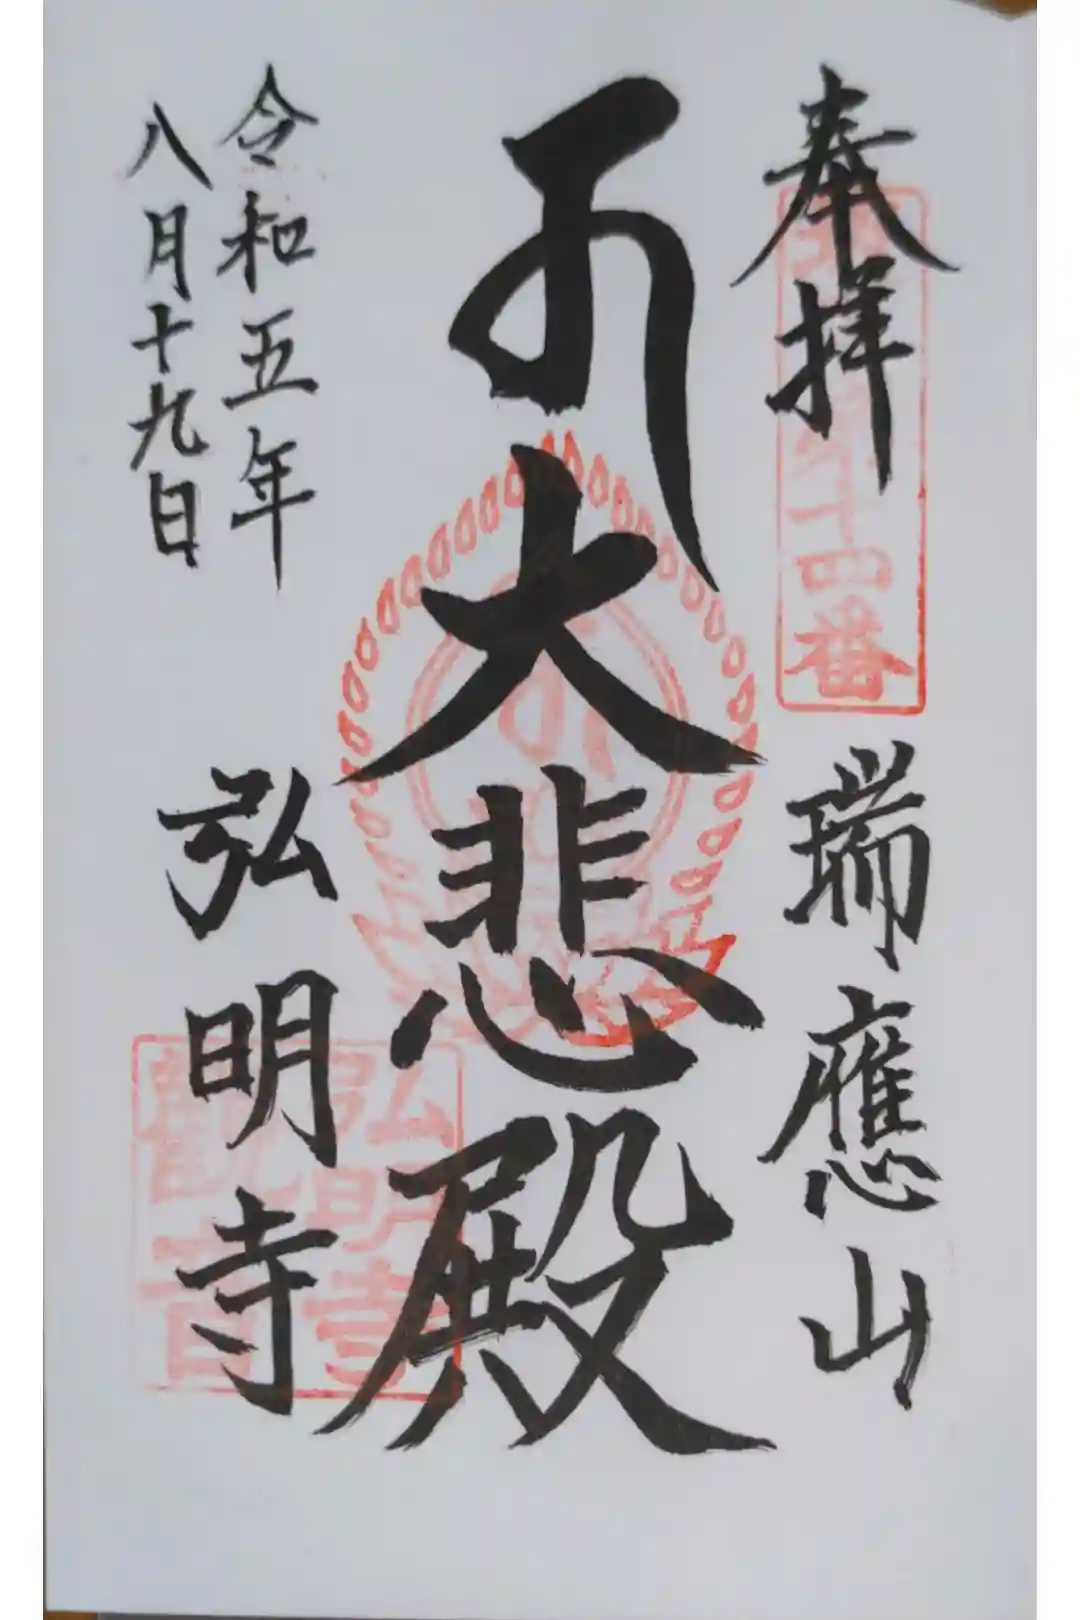 奉拝
瑞應山
十四番
大悲殿
令和五年
八月十九日
弘明寺
弘明寺
観音